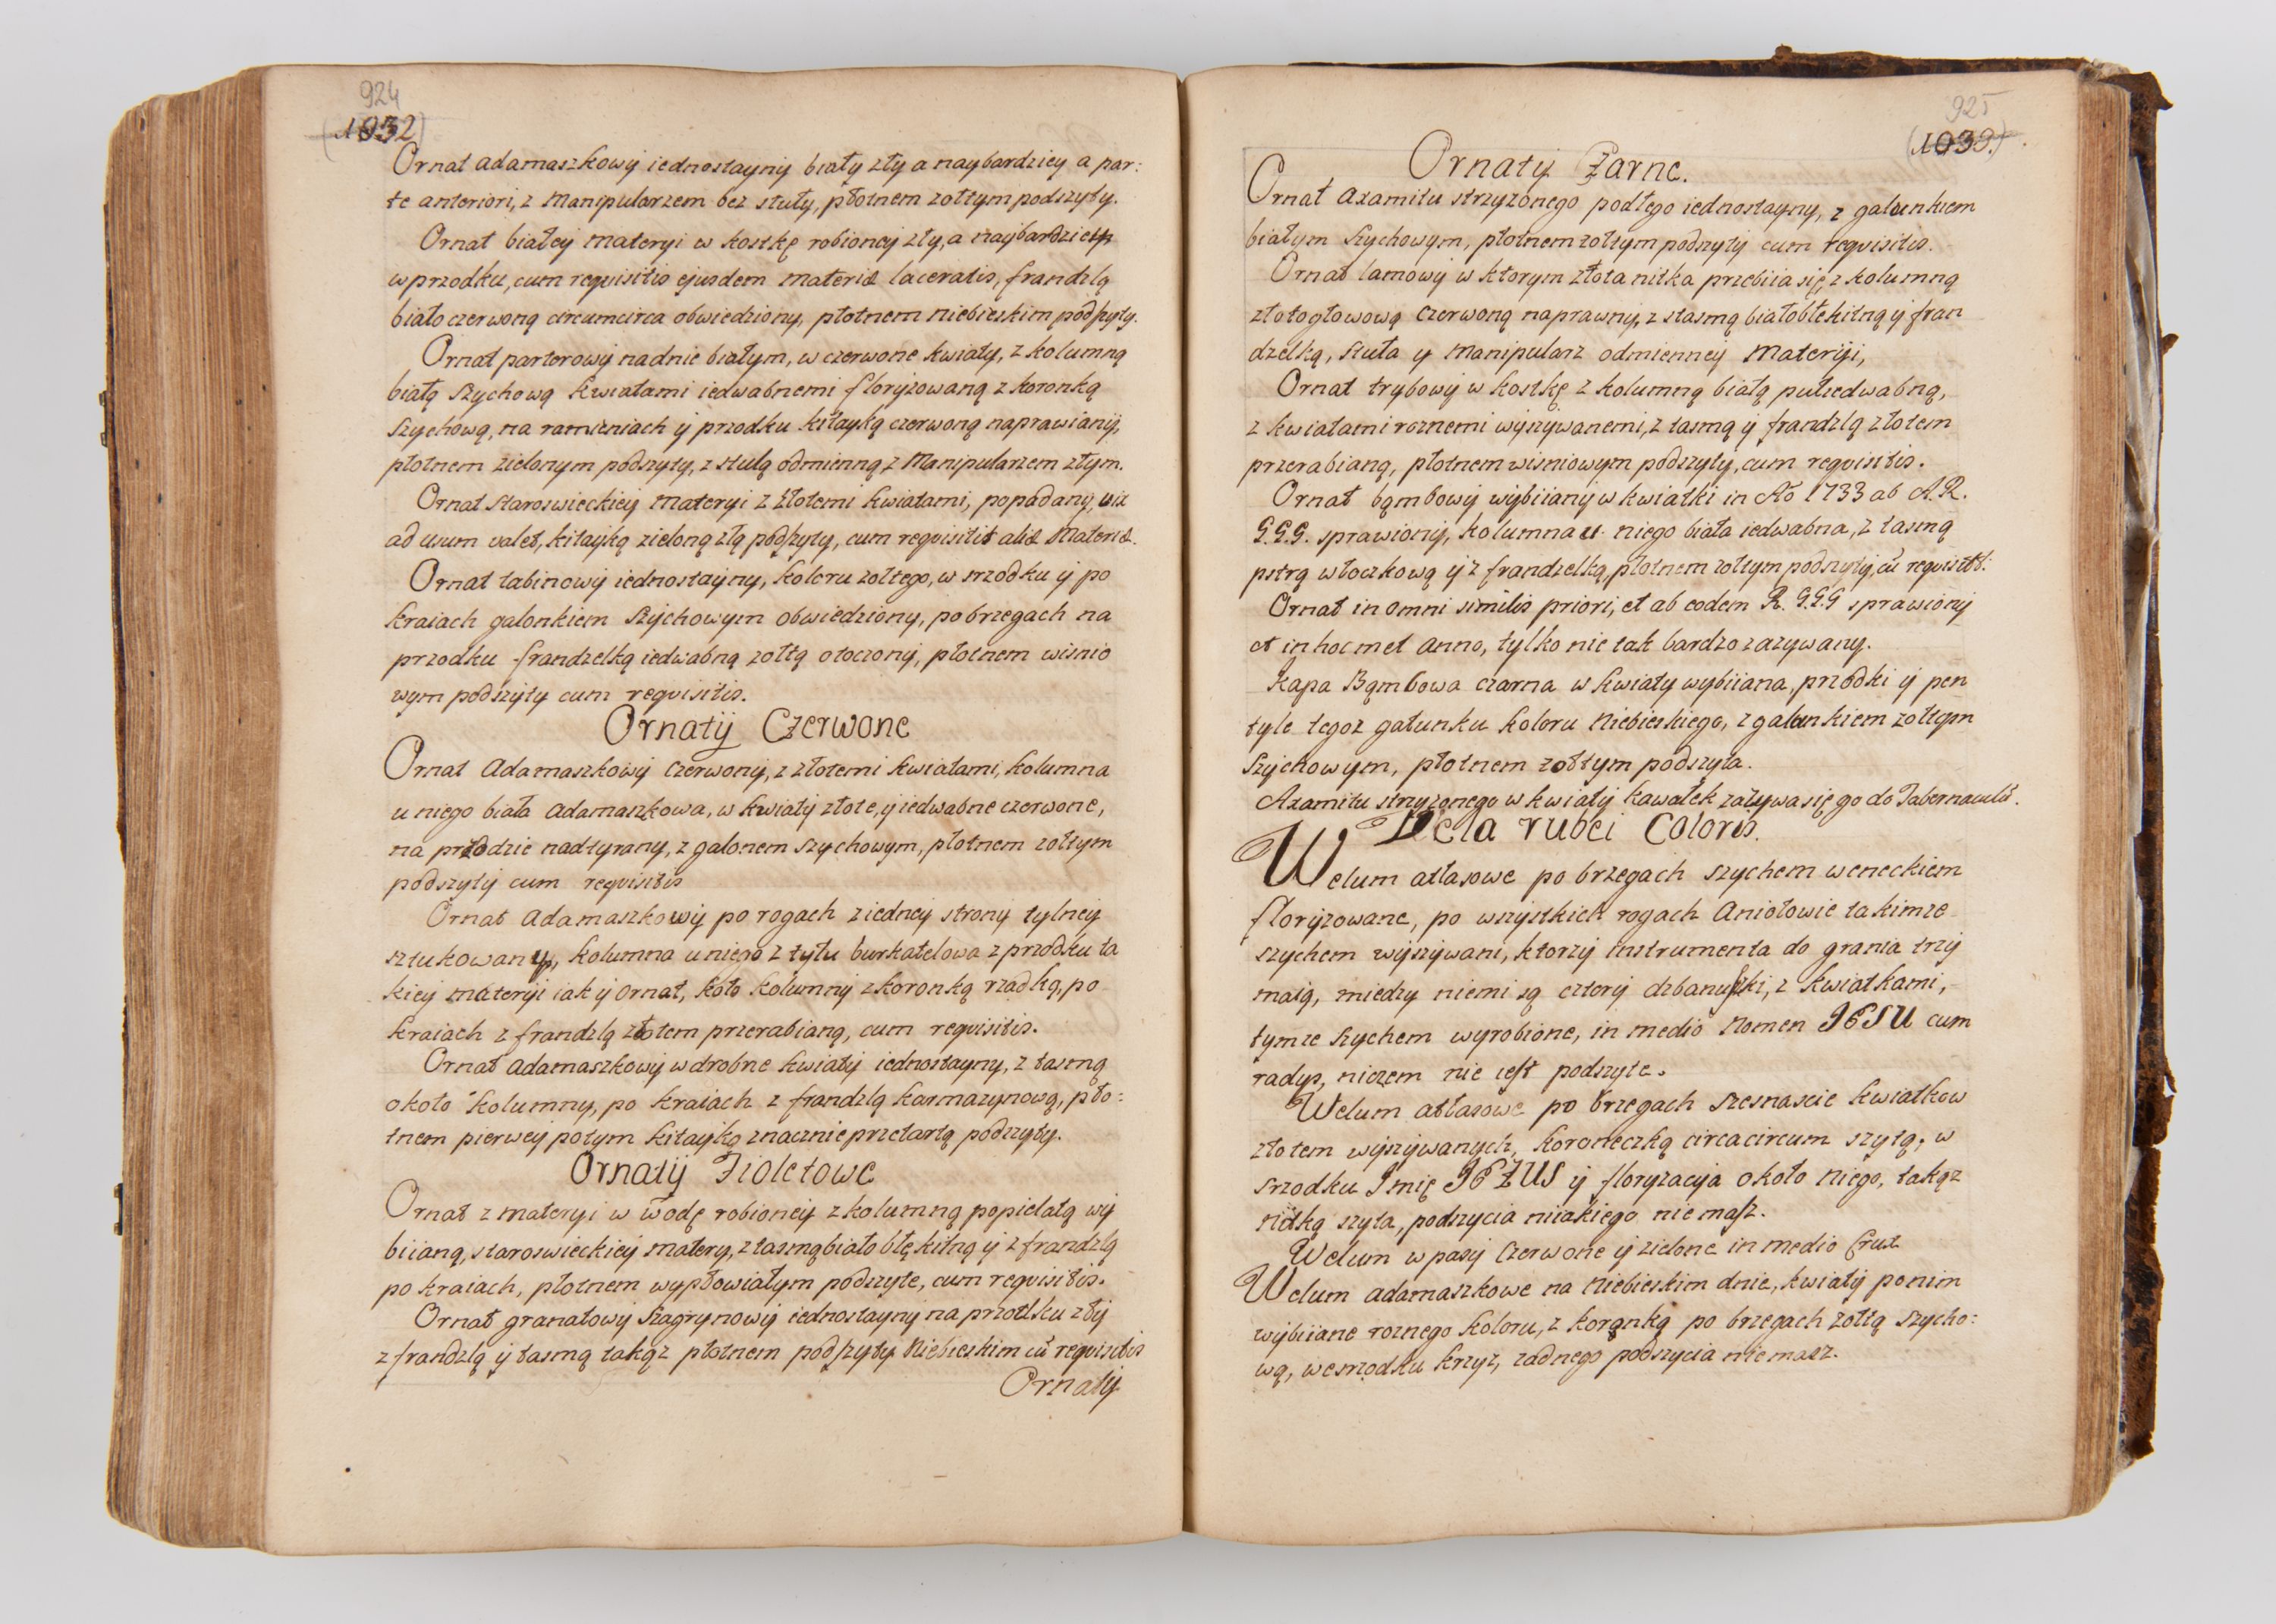 924
(1032)
Ornat adamaszkowy iednostayny biały zły a naybardziey a par:
te anteriori, z Manipularzem bez stuły, płotnem zołtym podszyty.
Ornat białey materyi w kostkę robioney zły, a naybardziey
w przodku, cum requisitis ejusdem materiæ laceratis, frandzlą
biało czerwoną circumcirca obwiedziony, płotnem niebieskim podszyty.
Ornat parterowy na dnie białym, w czerwone kwiaty, z kolumną
białą szychową kwiatami iedwabnemi floryzowaną z koronką
szychową, na ramieniach y przodku kitayką czerwoną naprawiany,
płotnem zielonym podszyty, z stułą odmienną z Manipularzem złym.
Ornat staroswieckiey materyi z złotemi kwiatami, popadany, vix
ad usum valet, kitayką zieloną złą podszyty, cum requisitis aliæ Materiæ.
Ornat tabinowy iednostayny, koloru zołtego, w srzodku y po
kraiach galonkiem szychowym obwiedziony, po brzegach na
przodku frandzelką iedwabną zołtą otoczony, płotnem wisnio
wym podszyty cum requisitis.
Ornaty Czerwone
Ornat Adamaszkowy czerwony, z złotemi kwiatami, kolumna
u niego biała adamaszkowa, w kwiaty złote, y iedwabne czerwone,
na przodzie nadtyrany, z galonem szychowym, płotnem zołtym
podszyty cum requisitis
Ornat adamaszkowy po rogach z iedney strony tylney
sztukowany, kolumna u niego z tyłu burkatelowa z przodku ta
kiey materyi iak y ornat, koło kolumny z koronką rzadką, po
kraiach z frandzlą złotem przerabianą, cum requisitis.
Ornat adamaszkowy w drobne kwiaty iednostayny, z tasmą
około kolumny, po kraiach z frandzlą karmazynową, pło:
tnem pierwey potym kitayką znacznie przetartą podszyty.
Ornaty Fioletowe
Ornat z materyi w wodę robioney z kolumną popielatą wy
biianą, staroswieckiey matery, z tasmą biało błękitną y z frandzlą
po kraiach, płotnem wypłowiałym podszyte, cum requisitis.
Ornat granatowy szagrynowy iednostayny na przodku zły
z frandzlą y tasmą takąz płotnem podszyty Niebieskim cũ requisitis
Ornaty
925
(1033.)
Ornaty Czarne.
Ornat axamitu strzyzonego podłego iednostayny, z galunkiem
białym szychowym, płotnem zołtym podszyty cum requisitis.
Ornat lamowy w ktorym złota nitka przebiia się, z kolumną
złotogłowową czerwoną naprawny, z tasmą białobłekitną y fran
dzelką, stuła y Manipularz odmienney Materiji,
Ornat trybowy w kostkę z kolumną białą pułiedwabną,
z kwiatami roznemi wyszywanemi, z tasmą y frandzlą złotem
przerabianą, płotnem wisniowym podszyty, cum requisitis.
Ornat bąmbowy wybiiany w kwiatki in Ao 1733 ab A.R.
G.G.G. sprawiony, kolumna u niego biała iedwabna, z tasmą
pstrą włoczkową y z frandzelką, płotnem zołtym podszyty, cũ requisit:
Ornat in omni similis priori, et ab eodem R. G.G.G sprawiony
et in hocmet anno, tylko nie tak bardzo zazywany.
Kapa Bąmbowa czarna w kwiaty wybiiana, przodki y pen
tyle tegoz gatunku koloru Niebieskiego, z galunkiem zołtym
szychowym, płotnem zołtym podszyta.
Axamitu strzyzonego w kwiaty kawałek zazywa się go do Tabernaculũ.
Vela rubei Coloris.
Welum atłasowe po brzegach szychem weneckiem
floryzowane, po wszystkich rogach Aniołowie takimze
szychem wyszywani, ktorzy instrumenta do grania trzy
maią, miedzy niemi są cztery dzbanuszki, z kwiatkami,
tymze szychem wyrobione, in medio Nomen IESU cum
radys, niczem nie iest podszyte.
Welum atłasowe po brzegach szesnascie kwiatkow
złotem wyszywanych, koroneczką circacircum szytą, w
srzodku Imię IEZUS y floryzacyja około niego, takąz
nitką szyta, podszycia niiakiego nie masz.
Welum w pasy czerwone y zielone in medio Crux
Welum adamaszkowe na niebieskim dnie, kwiaty po nim
wybiiane roznego koloru, z koronką po brzegach zołtą szycho:
wą, we srzodku krzyz, zadnego podszycia nie masz.